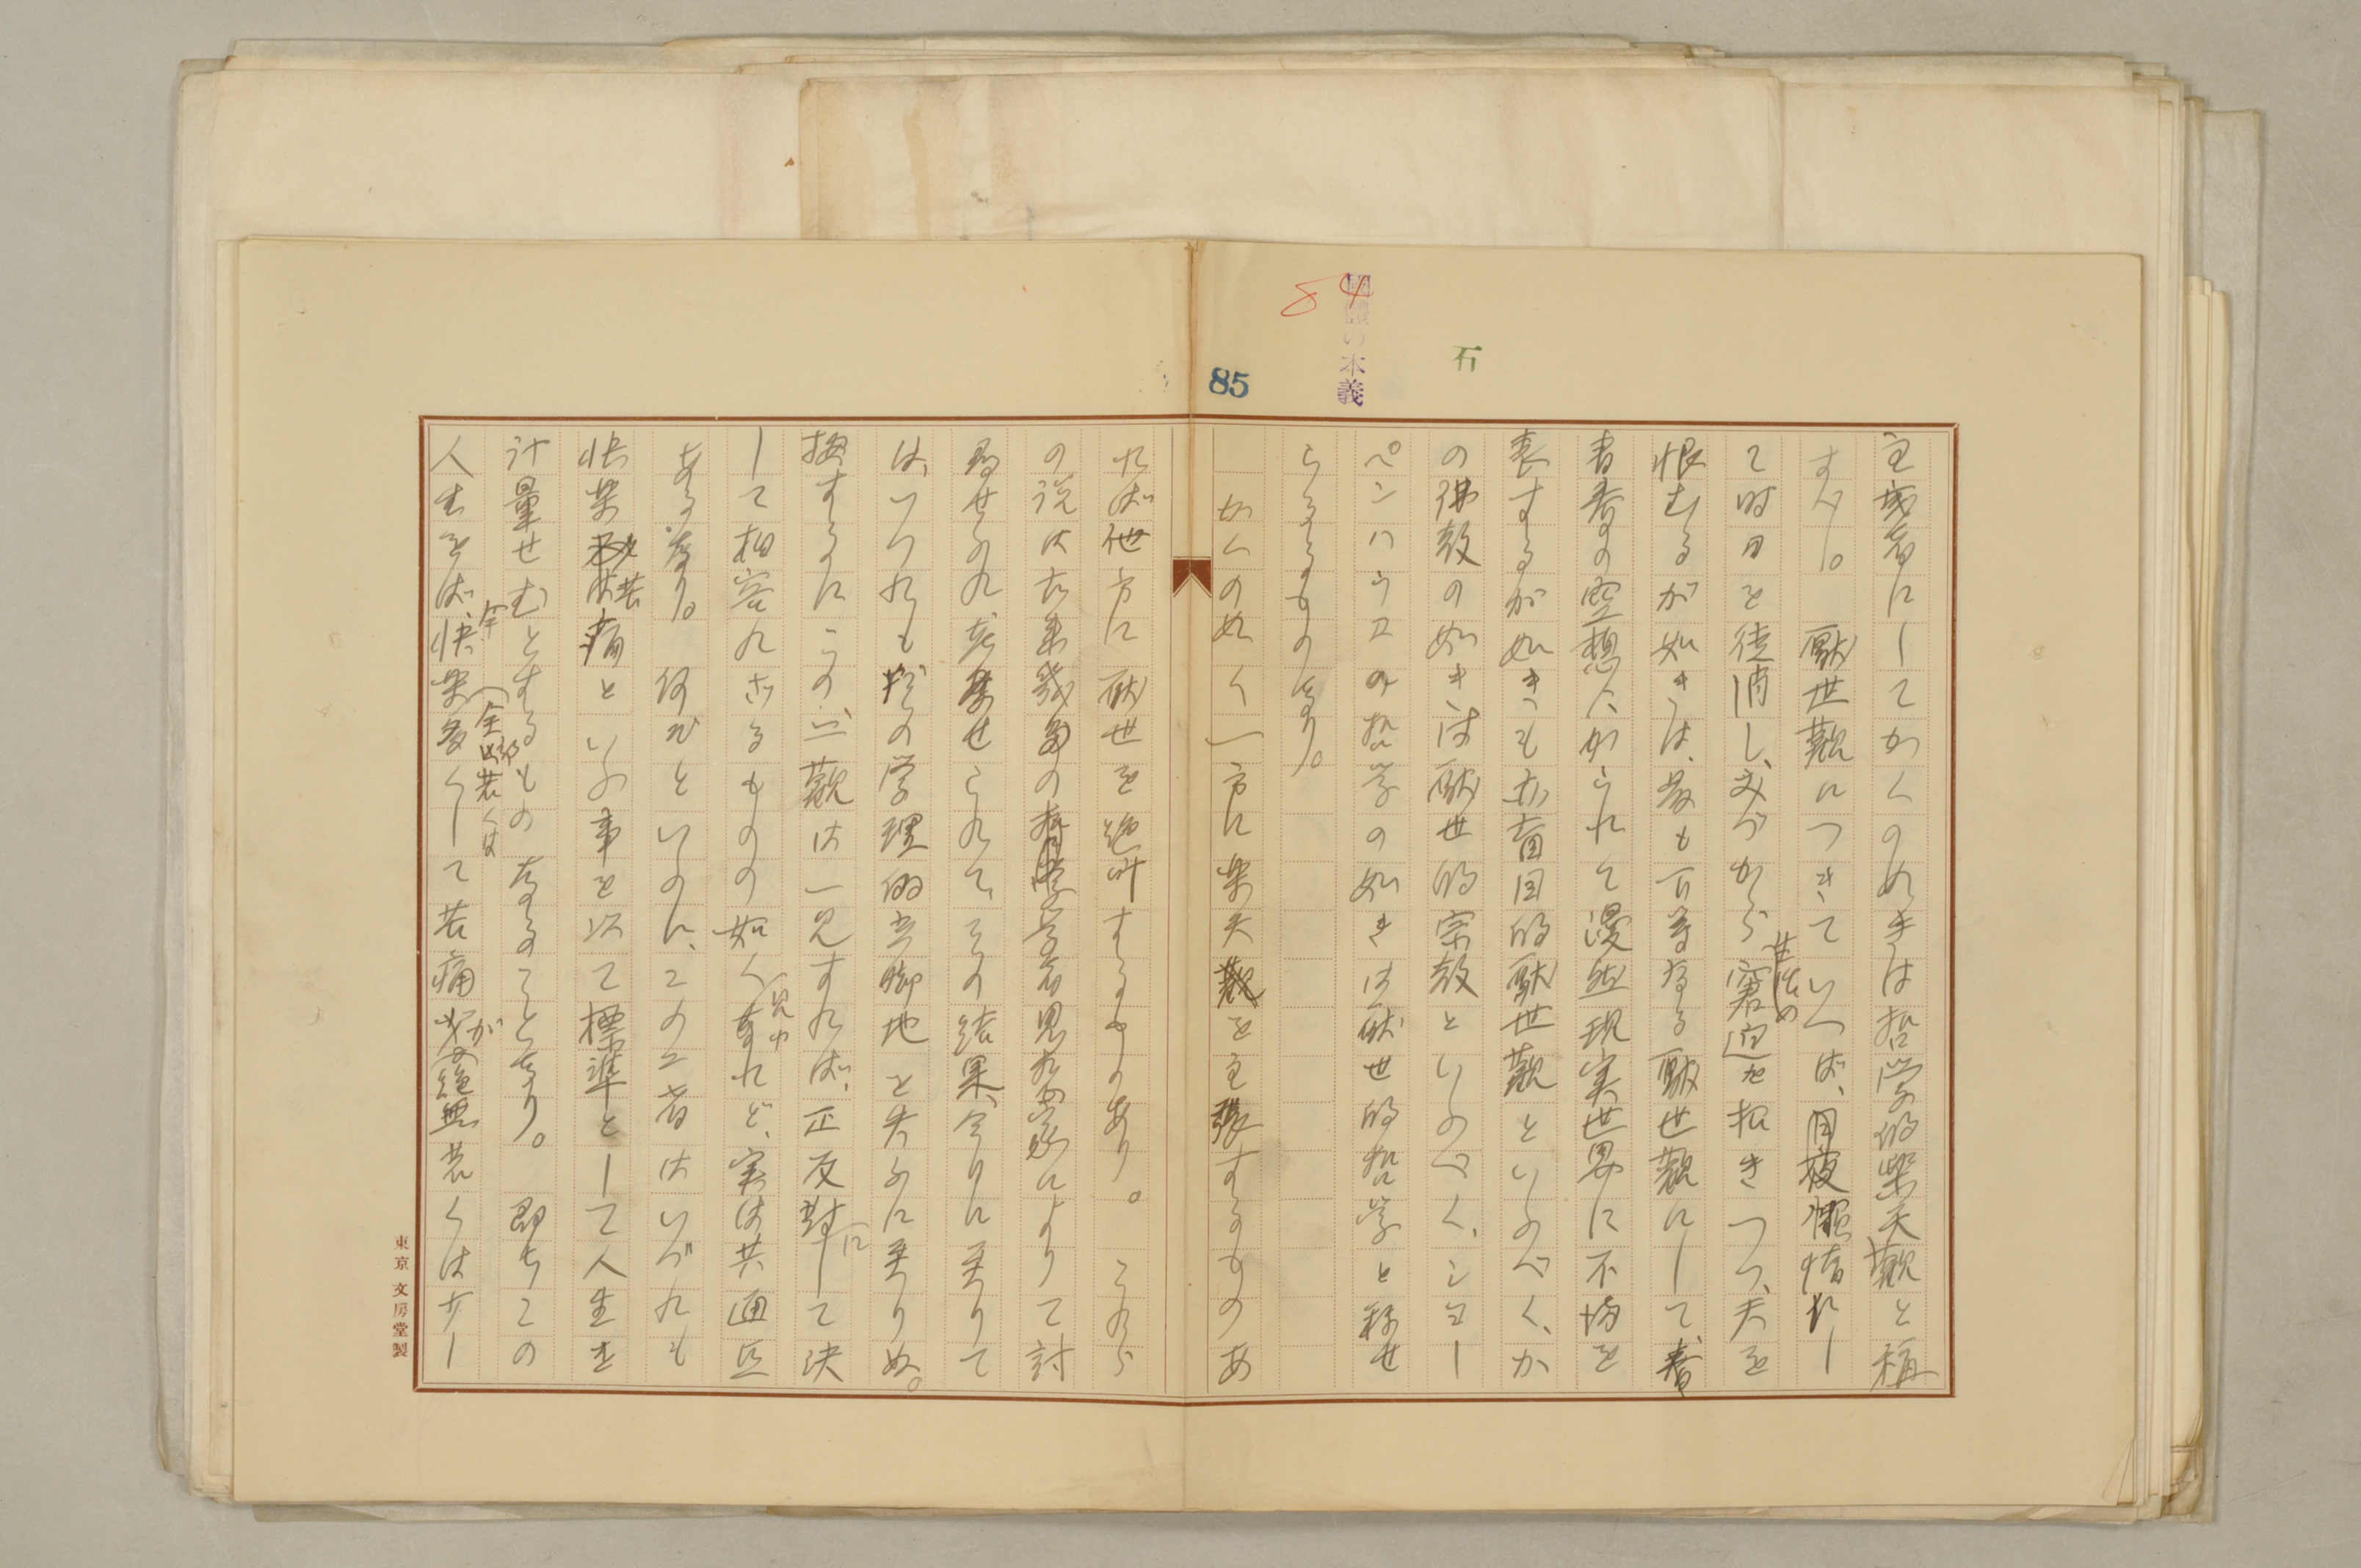 84
國體の本義
石
85
主義者にしてかくの如きは哲学的楽天観と稱
すべし。厭世観につきていへば、日夜懶惰にし
て時日を徒消し、みづから生活の窘迫を招きつつ、天を
恨むるが如きは、最も下等なる厭世観にして、青
春の空想にかられて漫然現実世界に不場を
表するが如きも亦盲目的厭世観といふべく、か
の佛教の如きは厭世的宗教といふべく、ショー
ペンハウヱの哲学の如きは厭世的哲学と称せ
らるるものなり。
かくの如く一方に楽天観を主張するものあ
れば他方に厭世を絶叫するものあり。これら
の説は古来幾多の学者思想家によりて討
究せられ、その結果、今日に至りて
は、いづれも学理的立脚地を失ふに至りぬ。
按ずるにこの二観は一見すれば、正反対にして決
して相容れざるものの如く見ゆれど、実は共通点
あるなり。何ぞといふに、この二者はいづれも
快楽若くは苦痛といふ事を以て標準として人生を
計量せむとするものなることなり。即ちこの
人生をば、快楽多くして苦痛が絶無若くは少し
東京 文房堂製